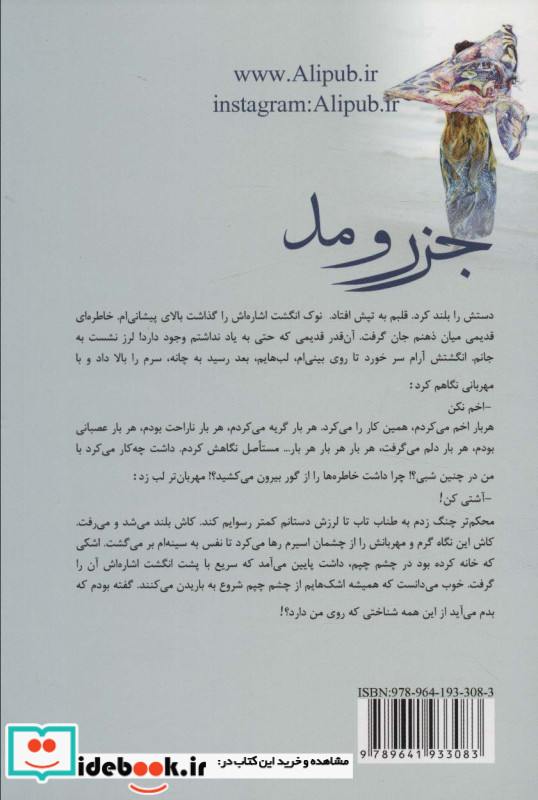 www.Alipub.ir
instagram:Alipub.ir
جزر و مد
دستش را بلند کرد. قلبم به تپش افتاد. نوک انگشت اشاره‌اش را گذاشت بالای پیشانی‌ام. خاطره‌ای
قدیمی میان ذهنم جان گرفت. آن‌قدر قدیمی که حتی به یاد نداشتم وجود دارد! لرز نشست به
جانم. انگشتش آرام سر خورد تا روی بینی‌ام، لب‌هایم، بعد رسید به چانه، سرم را بالا داد و با
مهربانی نگاهم کرد:
-اخم نکن
هربار اخم می‌کردم، همین کار را می‌کرد. هر بار گریه می‌کردم، هر بار ناراحت بودم، هر بار عصبانی
بودم، هر بار دلم می‌گرفت، هر بار هر بار هر بار... مستأصل نگاهش کردم. داشت چه‌کار می‌کرد با
من در چنین شبی؟! چرا داشت خاطره‌ها را از گور بیرون می‌کشید؟! مهربان‌تر لب زد:
-آشتی کن!
محکم‌تر چنگ زدم به طناب تاب تا لرزش دستانم کمتر رسوایم کند. کاش بلند می‌شد و می‌رفت.
کاش این نگاه گرم و مهربانش را از چشمان اسیرم رها می‌کرد تا نفس به سینه‌ام بر می‌گشت. اشکی
که خانه کرده بود در چشم چپم، داشت پایین می‌آمد که سریع با پشت انگشت اشاره‌اش آن را
گرفت. خوب می‌دانست که همیشه اشک‌هایم از چشم چپم شروع به باریدن می‌کنند. گفته بودم که
بدم می‌آید از این همه شناختی که روی من دارد؟!
ISBN:978-964-193-308-3
9 789641 933083
مشاهده و خرید این کتاب در:
idebook.ir